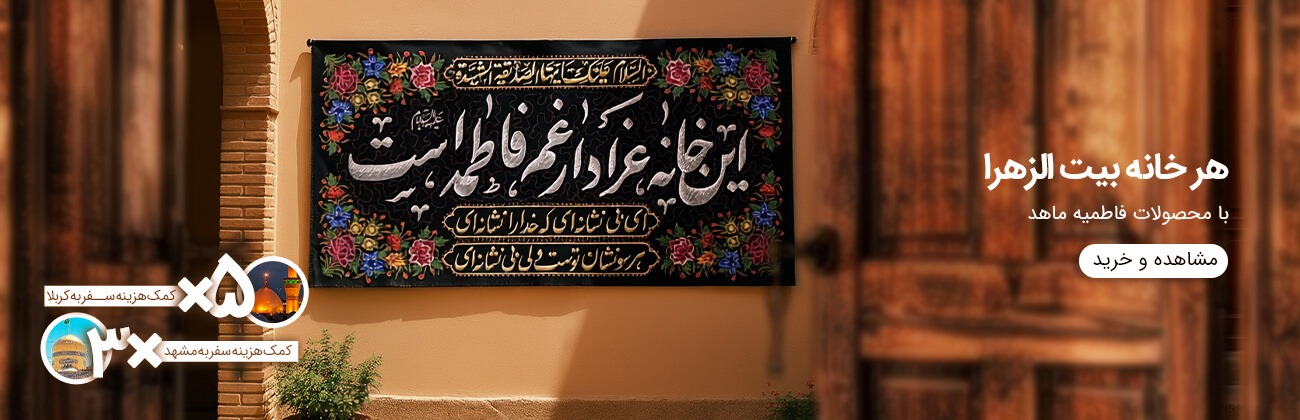 السلام علیک ایتها الصدیقة الشهیدة
این خانه عزادار غم فاطمه است
علیها السلام
ای بی نشانه ای که خدا را نشانه ای
هر سو نشان توست ولی بی نشانه ای
هر خانه بیت الزهرا
با محصولات فاطمیه ماهد
مشاهده و خرید
۵×
کمک هزینه سفر به کربلا
۳×
کمک هزینه سفر به مشهد